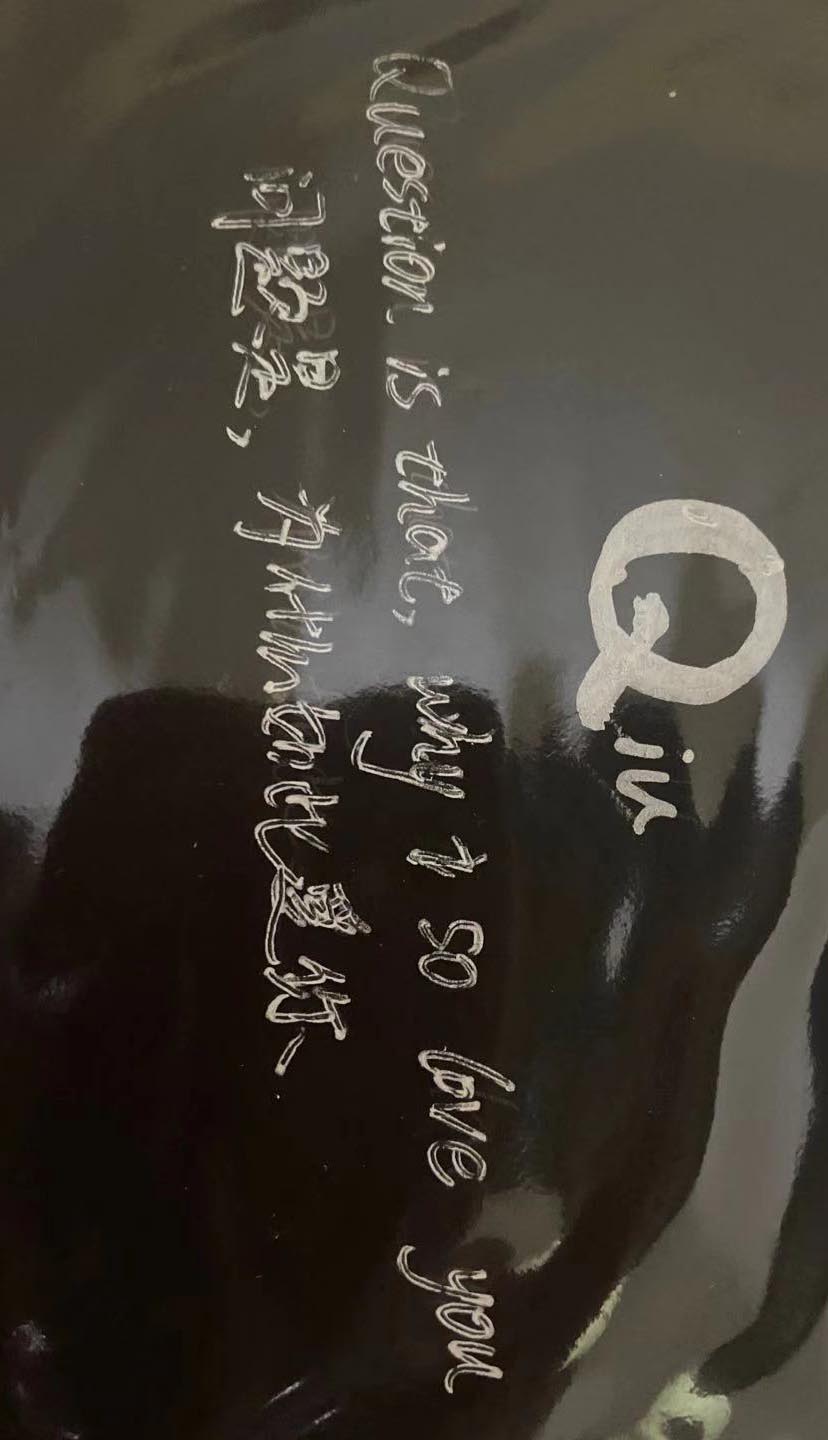 Qiu
Question is that, why I so love you
问题是，为什么如此爱你、